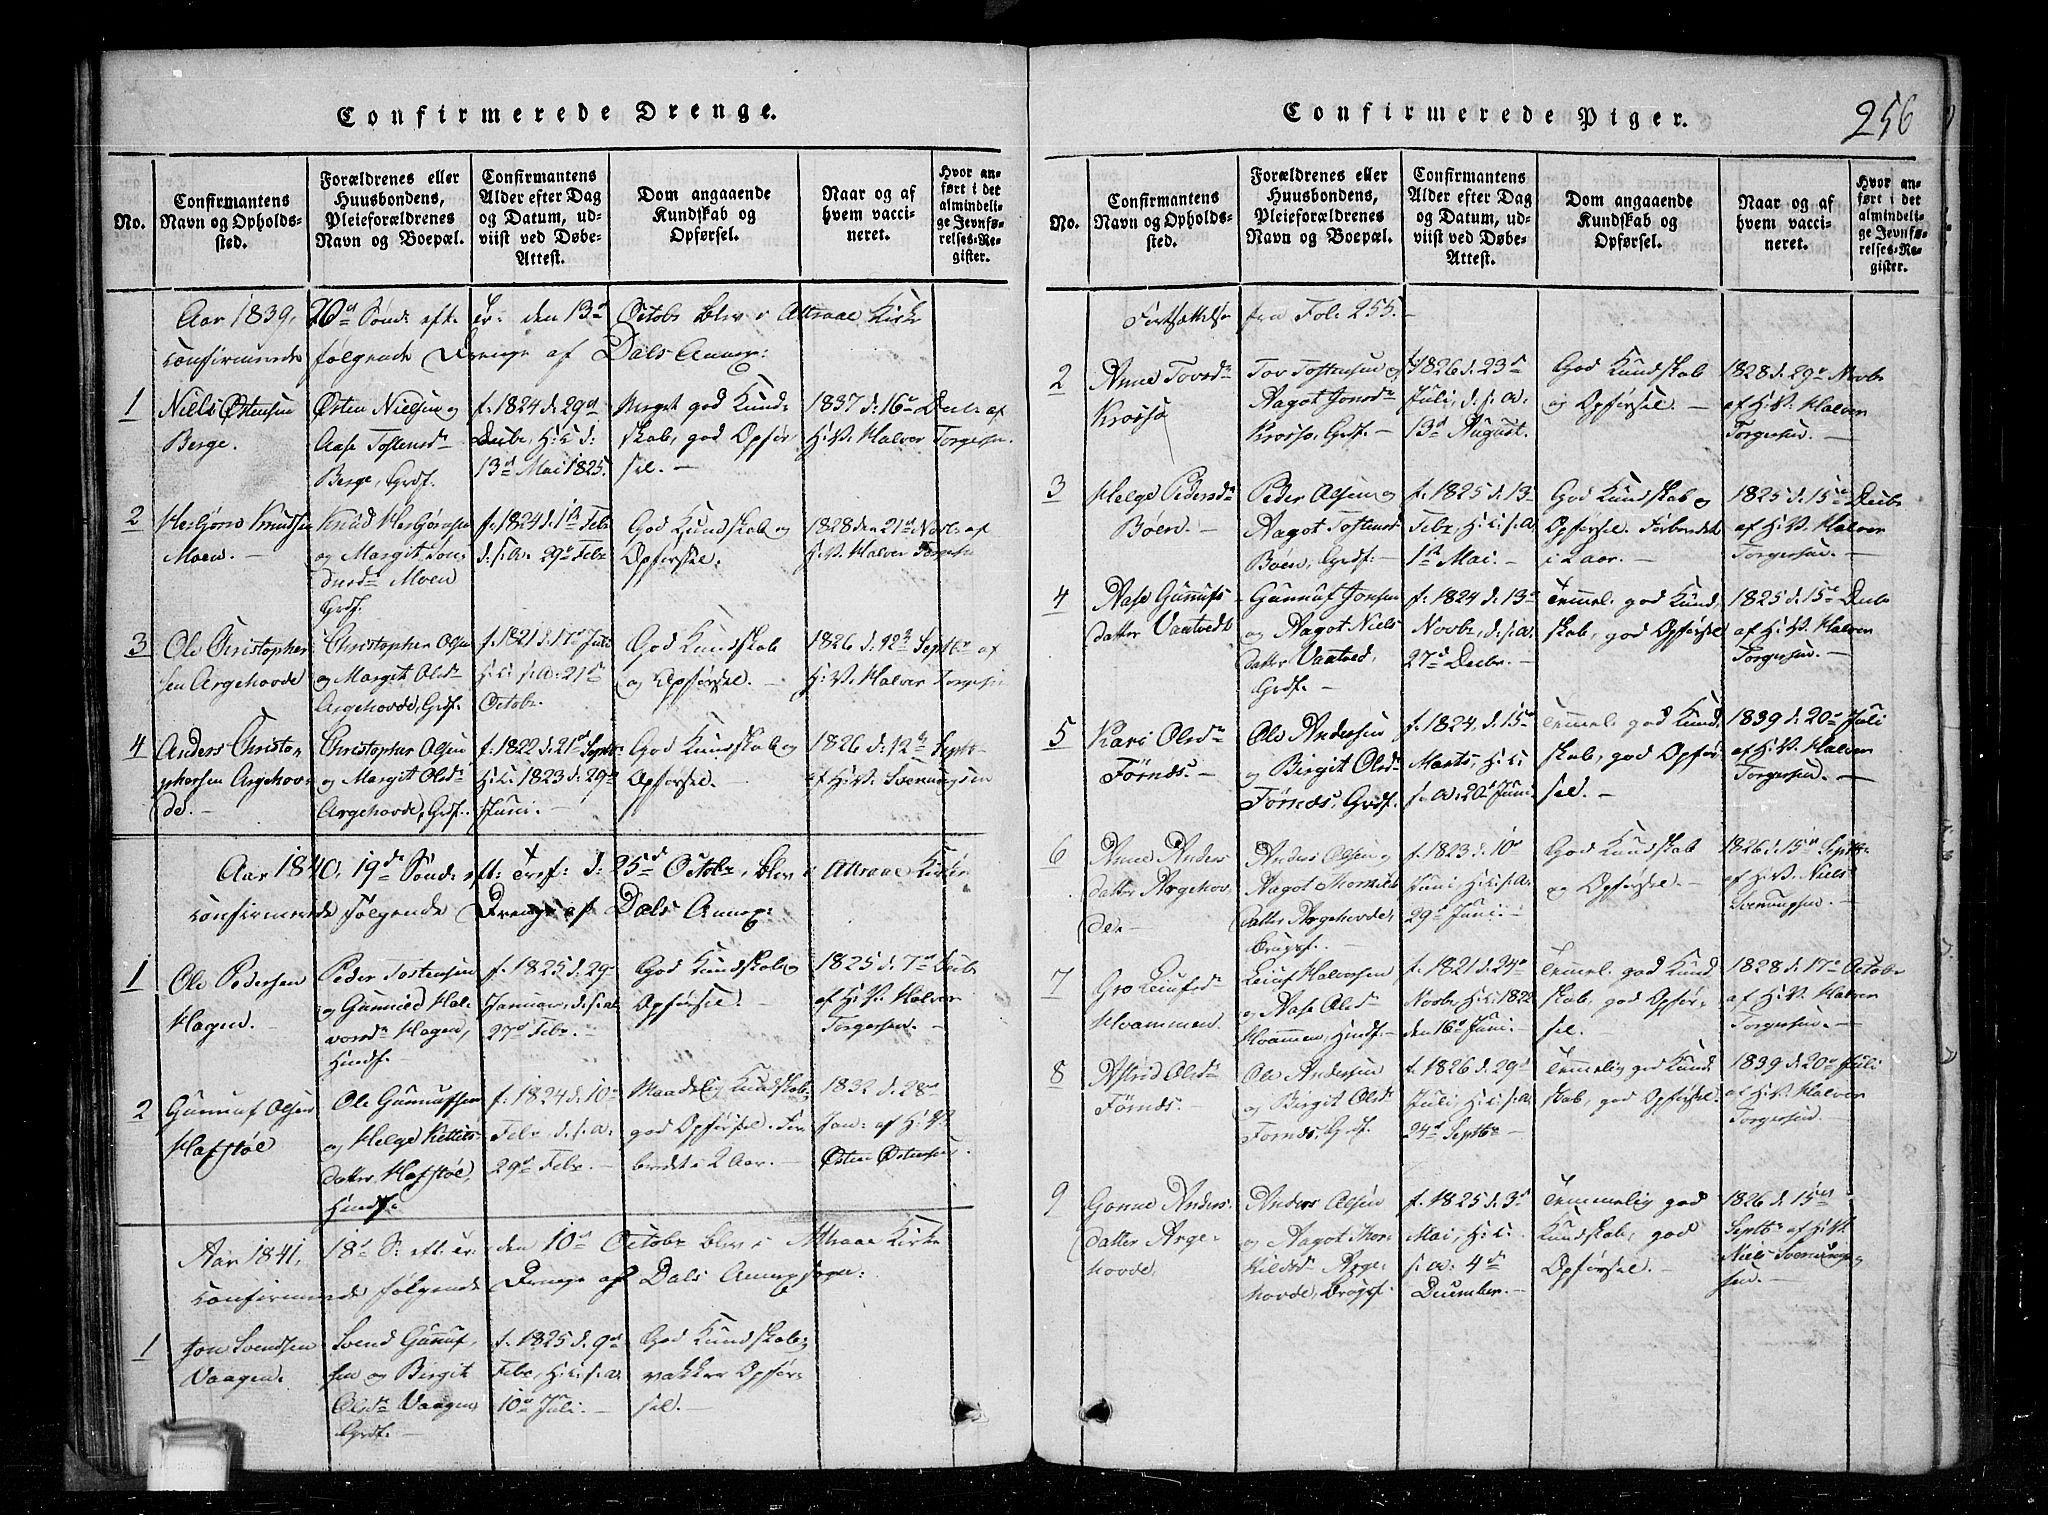 Confirmerede Drenge.
No.
Confirmantens
Navn og Opholds-
sted.
Forældrenes eller
Huusbondens,
Pleieforældrenes
Navn og Boepæl.
Confirmantens
Alder efter Dag
og Datum, ud-
viist ved Døbe-
Attest.
Dom angaaende
Kundskab og
Opførsel.
Naar og af
hvem vacci-
neret.
Hvor an-
ført i det
almindeli-
ge Jevnfø-
relses-Re-
gister.
Aar 1839, 20de Sönd: eft: Tr: den 13de Octobr blev i Attraae Kirke
confirmerede følgende Drenge af Dals Annex:
1
Niels Østensen
Berge.
Østen Nielsen og
Aase Tostensdr
Berge, Grdf.
f. 1824 d. 29de
Decbr, H: i d:
13de Mai 1825.
Meget god Kund-
skab, god Opfør-
sel. —
1837 d. 16de Decbr. af
H: V. Halver Torgersen.
2
Knudsen
Moen. —
Knud
og Margit
Moen
Grdf.
f. 1824 d. 1ste Febr
d. s. A. 29de Febr
God Kundskab og
Opførsel.
1828 den 21de Novbr. af
H: V. Halver Torgersen
3
Ole Christopher-
sen Argehovde
Christopher Olsen
og Margit Olsdr
Argehovde, Grdf.
f. 1821 d. 17de Juli
H: i s. A. 21de
Octobr.
God Kundskab
og Opførsel. —
1826 d. 12te Septbr af
H: V. Halver Torgersen
4
Anders Christo-
phersen Argehov-
de. —
Christopher Olsen
og Margit Olsdr
Argehovde, Grdf.
f. 1822 d. 21de Septbr
H: i 1823 d. 29de
Juni. —
God Kundskab og
Opførsel. —
1826 d. 12te Septbr
af H: V. Svenungsen
Aar 1840, 19de Sönd: eft: Tref: d. 25de Octobr, blev i Attraae Kirke
confirmerede følgende Drenge af Dals Annex:
1
Ole Pedersen
Hagen.
Peder Tostensen
og Gunnild Hal-
vorsdr Hagen,
Huusf.
f. 1825 d. 29
Januar, d. s. A.
27de Febr. —
God Kundskab og
Opførsel. —
1825 d. 7de Decbr
af H: V. Halver
Torgersen. —
2
Gunnuf Olsen
Hafstøl
Ole Gunnufsen
og Helge Kittils-
datter Hafstøl,
Huusf.
f. 1824 d. 10de
Febr. d. s. A.
29de Febr. —
Maadelig Kundskab,
god Opførsel. For-
beredt i 2 Aar. —
1832 d. 28de
Jan: af H: V.
Østen Østensen.
Aar 1841, 18de S: eft: Tr: den 10de Octobr blev i Attraae Kirke
confirmerede følgende Drenge af Dals Annexsogn:
1
Jon Svendsen
Vaagen.
Svend Gunnuf-
sen og Birgit
Olsdr Vaagen,
Grdf. —
f. 1825 d. 9de
Febr, H: i s. A.
10de Juli. —
God Kundskab,
vakker Opfør-
sel. —
Confirmerede Piger.
256
No.
Confirmantens
Navn og Opholds-
sted.
Forældrenes eller
Huusbondens,
Pleieforældrenes
Navn og Boepæl.
Confirmantens
Alder efter Dag
og Datum, ud-
viist ved Døbe-
Attest.
Dom angaaende
Kundskab og
Opførsel.
Naar og af
hvem vacci-
neret.
Hvor an-
ført i det
almindeli-
ge Jevnfø-
relses-Re-
gister.
Fortsættelse fra Fol: 255. —
2
Anne Tovsdr
Krossø
Tov Tostensen og
Aagot Jonsdr
Krossø, Grdf. —
f. 1826 d. 23de
Juli, d. s. A.
13de August.
God Kundskab
og Opførsel. —
1828 d. 29de Novbr
af H: V. Halver
Torgersen. —
3
Helge Pedersdr
Böen. —
Peder Olsen og
Aagot Tostensdr
Böen, Grdf. —
f. 1825 d. 13
Febr, H: i s. A.
1ste Mai. —
God Kundskab og
Opførsel. Forberedt
i 2 Aar. —
1825 d. 15de Decbr
af H: V. Halver
Torgersen. —
4
Aase Gunnufs-
datter Vaatvedt
Gunnuf Jonsen
og Aagot Niels-
datter Vaatved,
Grdf. —
f. 1824 d. 13de
Novbr, d. s. A.
27de Decbr. —
Temmel. god Kund-
skab, god Opførsel
1825 d. 15de Decbr
af H: V. Halver
Torgersen. —
5
Kari Olsdr
Førnæs. —
Ole Andersen
og Birgit Olsdr
Førnæs, Grdf.
f. 1824, d. 15de
Marts, H: i
s. A. 20de Juni.
Temmel. god Kund-
skab, god Opfør-
sel. —
1839 d. 20de Juli
af H: V. Halver
Torgersen. —
6
Anne Anders-
datter Argehov-
de. —
Anders Olsen og
Aagot Thorkilds-
datter Argehovde,
Brugsf. —
f. 1823 d. 10de
Juni H: i s. A.
29de Juni. —
God Kundskab
og Opførsel. —
1826 d. 15de Septbr
af H: V. Niels
Svenungsen. —
7
Gro Leufsdr
Hvammen.
Leuf Halvorsen
og Aase Olsdr
Hvammen, Huusf.
f. 1821 d. 24de
Novbr, H: i 1822
den 16de Juni. —
Temmel. god Kund-
skab, god Opfør-
sel. —
1828 d. 17de Octobr
af H: V. Halver
Torgersen. —
8
Astrid Olsdr
Førnæs. —
Ole Andersen
og Birgit Olsdr
Førnæs, Grdf.
f. 1826 d. 29de
Juli, H: i s. A.
24de Septbr
Temmelig god Kund-
skab, god Opførsel.
1839 d. 20de Juli
af H: V. Halver
Torgersen —
9
Gonne Anders-
datter Arge-
hovde.
Anders Olsen
og Aagot Thor-
kildsdr Arge-
hovde, Brugsf.
f. 1825 d. 3de
Mai, H: i
s. A. 4de
December. —
Temmelig god
Kundskab, god
Opførsel. —
1826 d. 15de
Septbr af H: V.
Niels Svenung-
sen. —